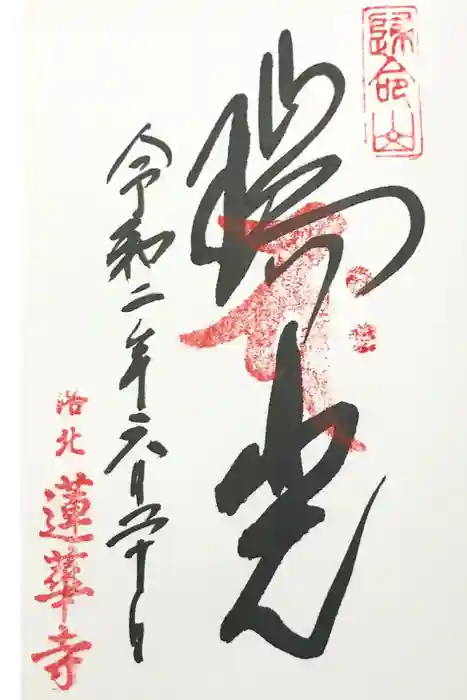 歸命山
瑞光
令和二年六月三十日
洛北
蓮華寺